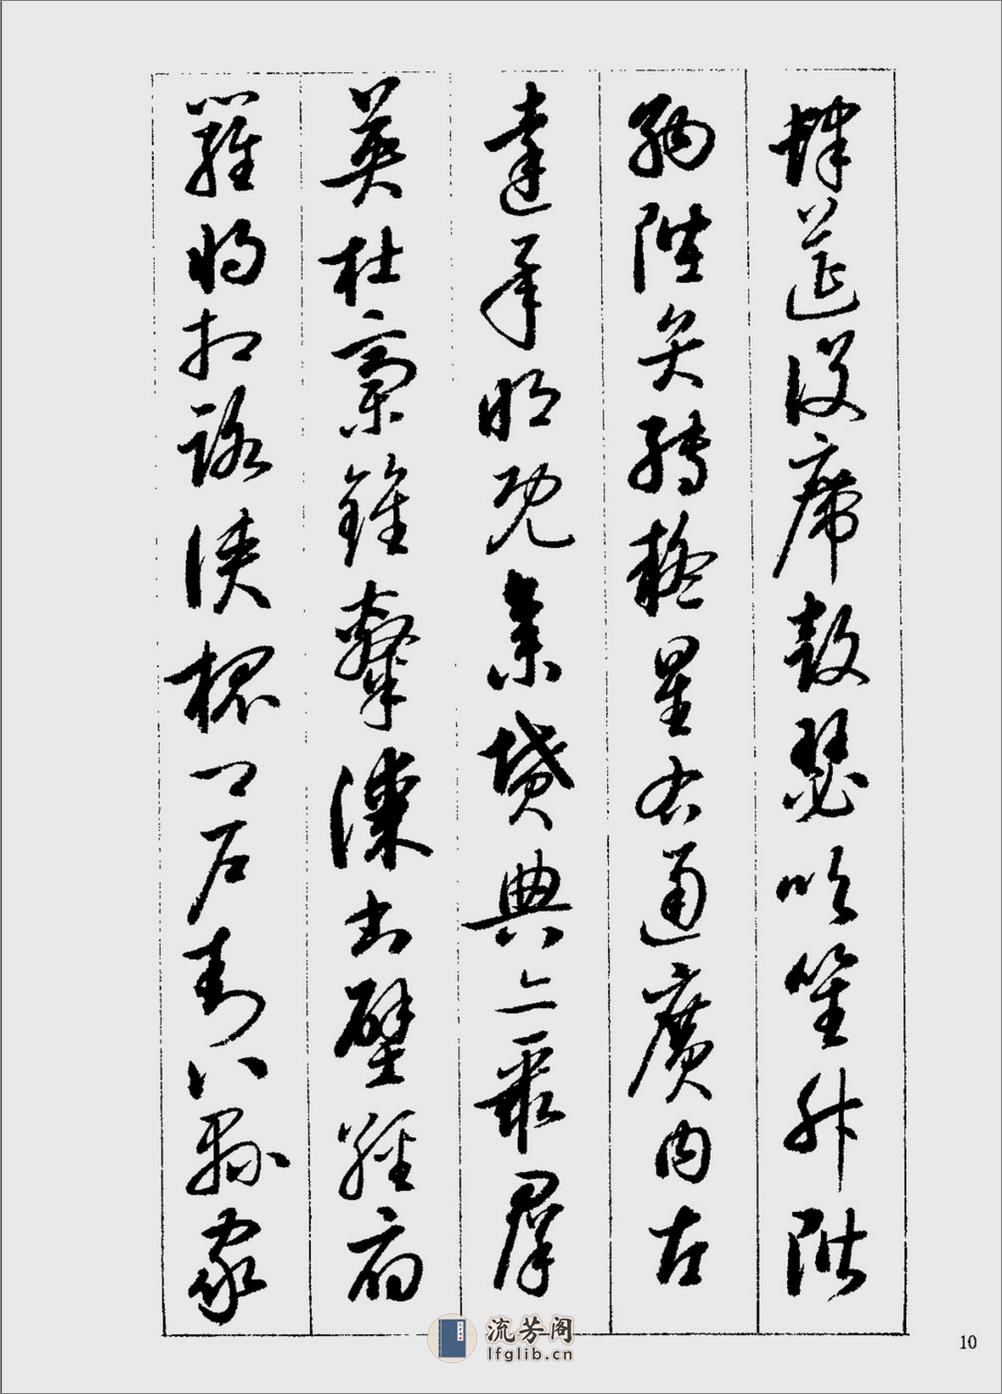 肆筵設席鼓瑟吹笙升階
納陛弁轉疑星右通廣內左
達承明既集墳典亦聚群
英杜稾鍾隸漆書壁經府
羅將相路俠槐卿戶封八縣家
流芳阁
lfglib.cn
10